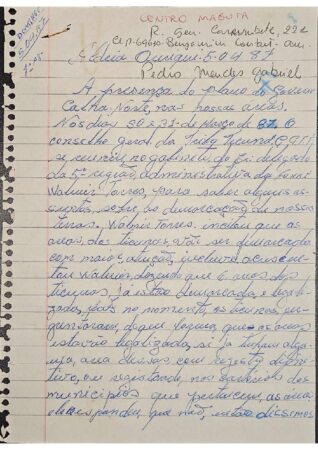 CENTRO MAGUTA
R. Gen. Carambute, 22
CEP-69630-Benjamin Const. am.
Aldeia 5.04 87
Pedro Mendes Gabriel
A presença do plano do Governo
Calha Norte, nas nossas áreas.
Nos dias 30 e 31 de março de 87. O
conselho geral da Tribo Ticuna CGTT
se reuniu no gabinete do Ex. delegado
da 5ª região administrativa da Funai
Valmir Torres, para saber alguns as-
suntos, sobre as demarcação de nossas
terras. Valmir Torres, que as
áreas dos ticunas, vão ser demarcada
com maior atenção,
tou Valmir, dizendo que 6 áreas dos
ticunas, já estão demarcada, e legali-
zadas, mas no momento, os ticunas, per-
guntaram, de que forma, que as áreas
estavão legalizada, si já tinham algu-
ma, com registro defini-
tivo, ou registrado, nos cartórios dos
municípios que pertencem, as áreas
ele respondeu que não, então dissemos